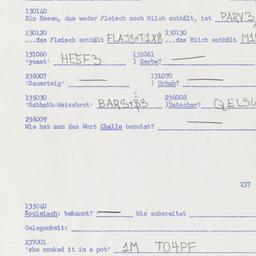 130140
Ein Essen, das weder Fleisch noch Milch enthält, ist PARV3
130120 130130
...das Fleisch enthält FLAJS+T1X8 ...das Milch enthält M1
131060 131061
'yeast' HE5F3 ) Gerbe?
236007 131070
'Sauerteig' ) Urhab?
135030 236008
'Sabbath-Weissbrot' BARS+BS )Datscher? QELS
236009
Wie hat man das Wort Challe benutzt?
237
133040
Kouleisch: bekannt? Wie zubereitet
Gelegenheit:
237001
'she cooked it in a pot' 1M TO4PF